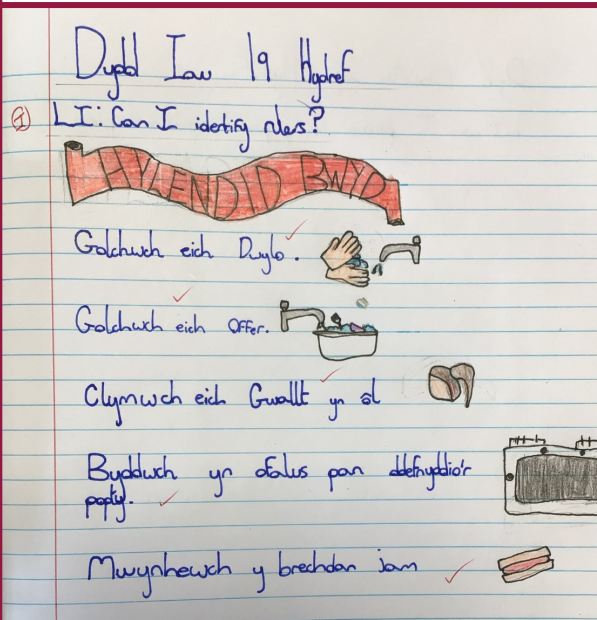 Dydd Iau 19 Hydref
I LI: Can I identify rules?
HYLENDID BWYD
Golchwch eich Dwylo.
Golchwch eich Offer.
Clymwch eich Gwallt yn ôl
Byddwch yn ofalus pan ddefnyddio'r
popty.
Mwynhewch y brechdan jam